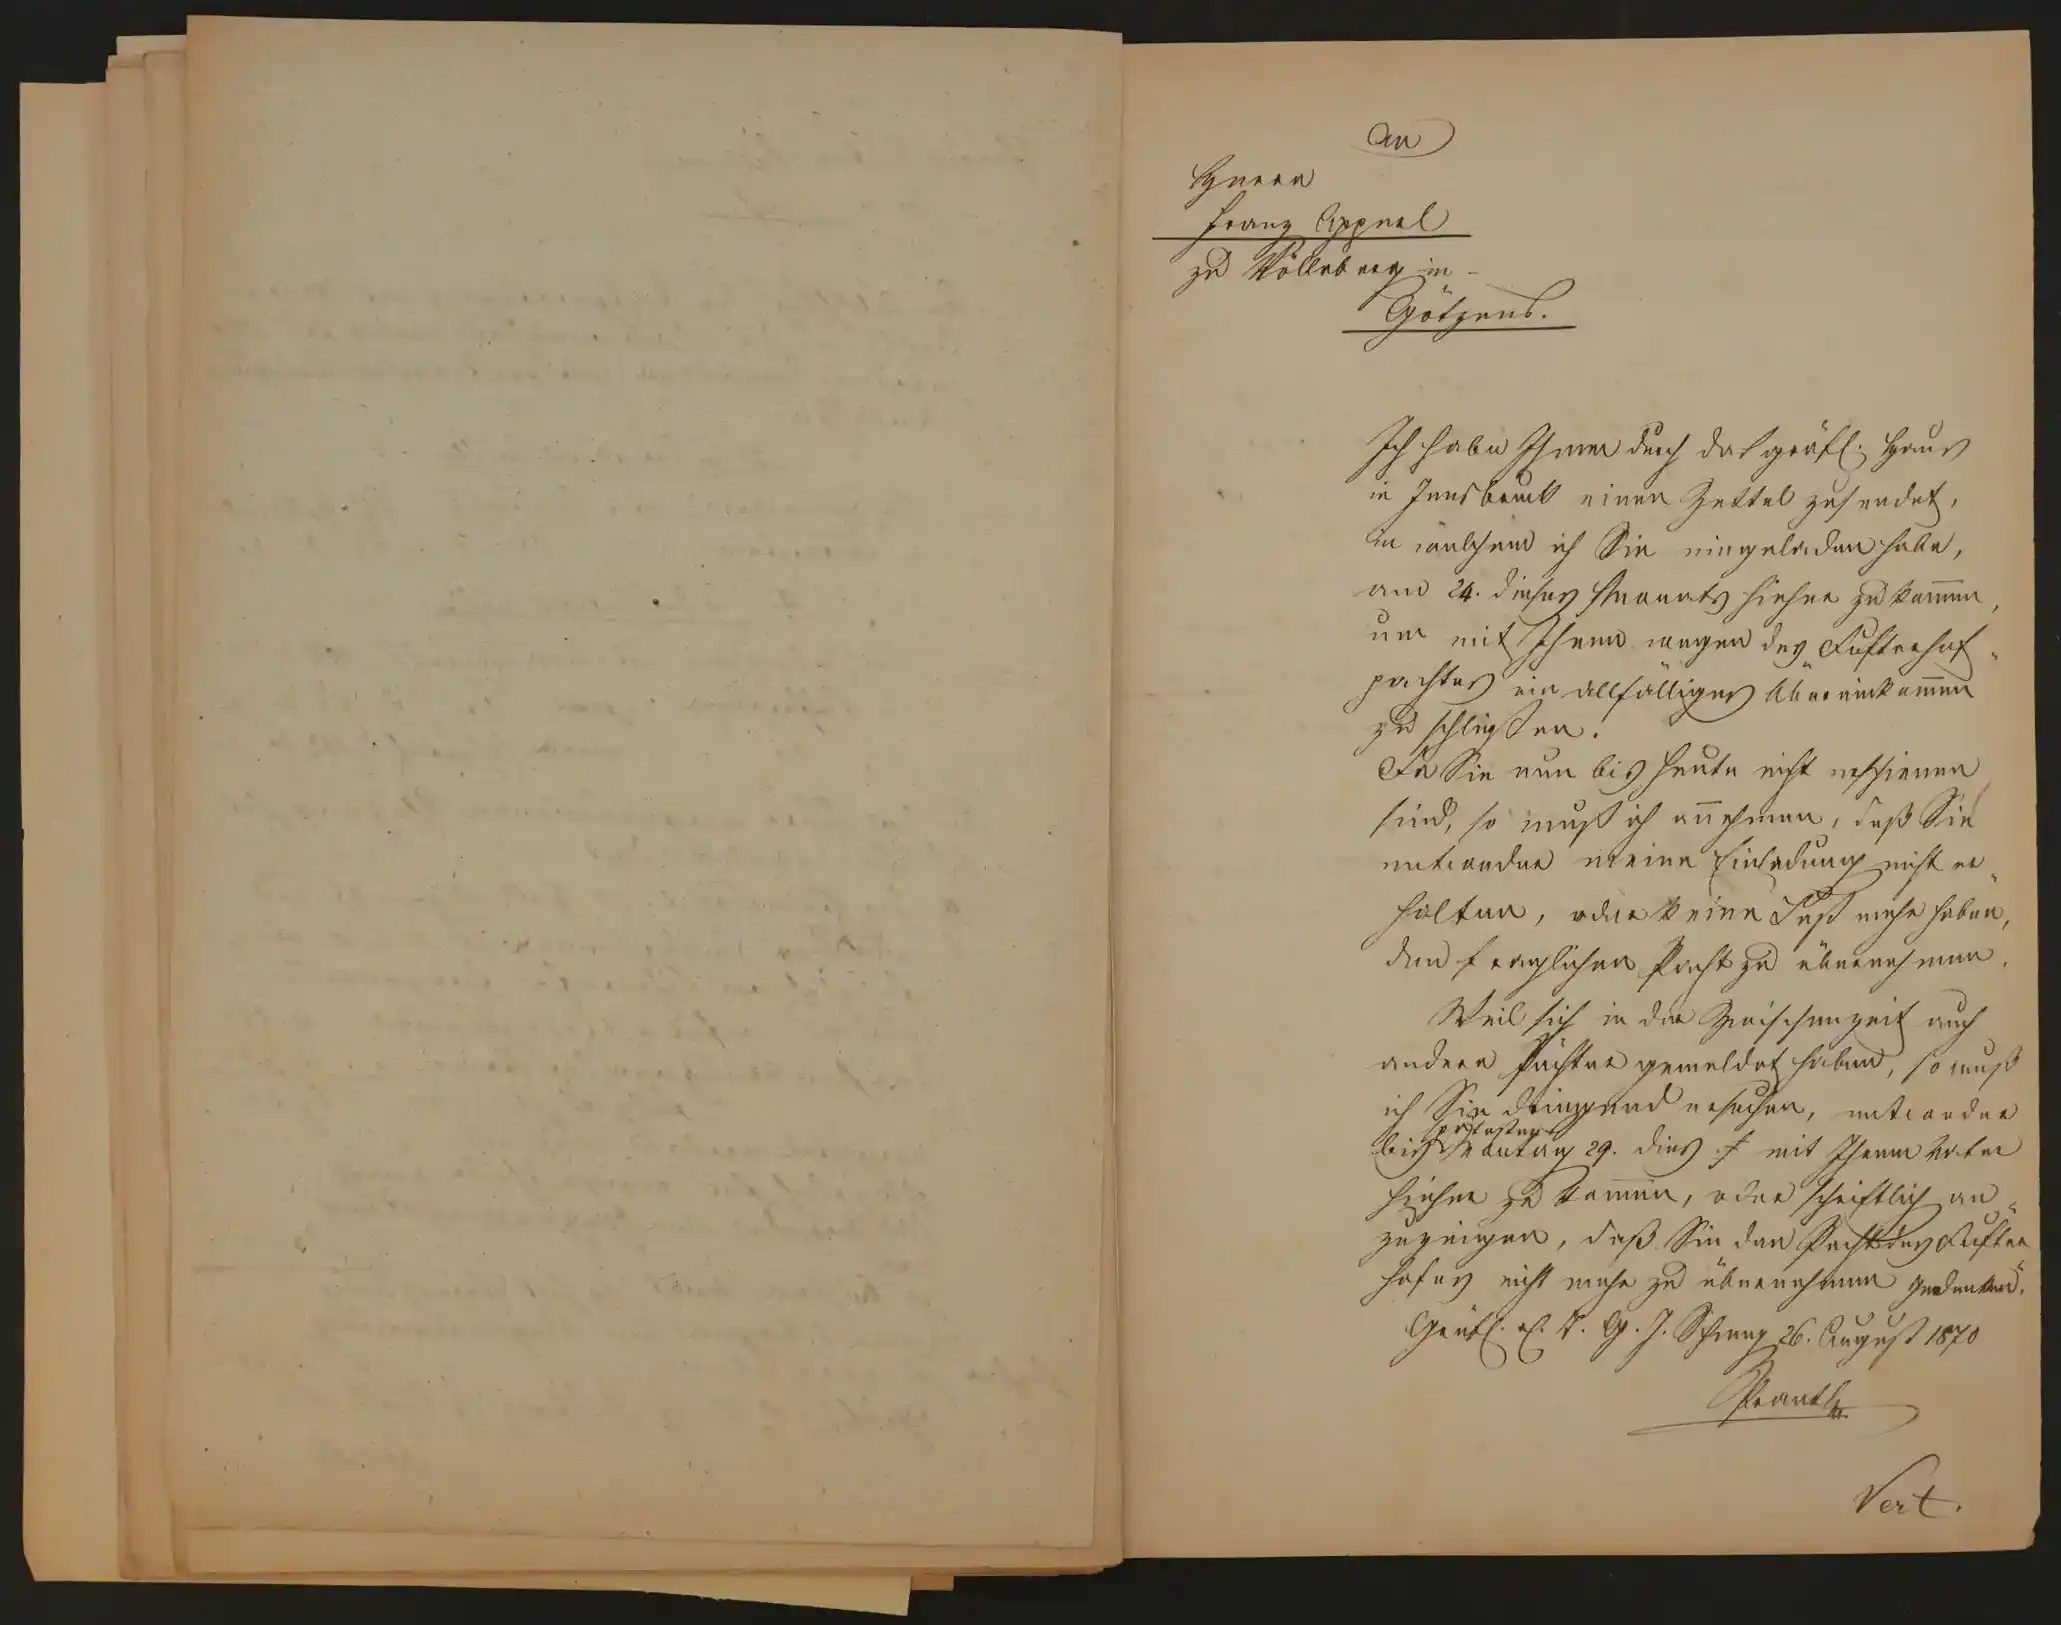 An
Herrn
Franz Apperl
zu Völleberg in
Götzens.
Ich habe Ihnen durch das gräfl. Haus
in Innsbruck einen Zettel zusendet,
in welchem ich Sie eingeladen habe,
am 24. dieses Monats hieher zu kommen,
um mit Ihnen wegen des Hof-
pachtes ein allfälliges Übereinkommen
zu schließen.
Da Sie nun bis heute nicht erschienen
sind, so muß ich annehmen, daß Sie
entweder meine Einladung nicht er-
halten, oder keine Lust mehr haben,
den fraglichen Pacht zu übernehmen.
Weil sich in der Zwischenzeit auch
andere Pächter gemeldet haben, so muß
ich Sie dringend ersuchen, entweder
spätestens
bis Montag 29. dies mit Ihrem Vater
hieher zu kommen, oder schriftlich an-
zuzeigen, daß Sie den Pacht des
hofes nicht mehr zu übernehmen gedenken.
Gräfl. G. J. 26. August 1870
Prantl
Vert.